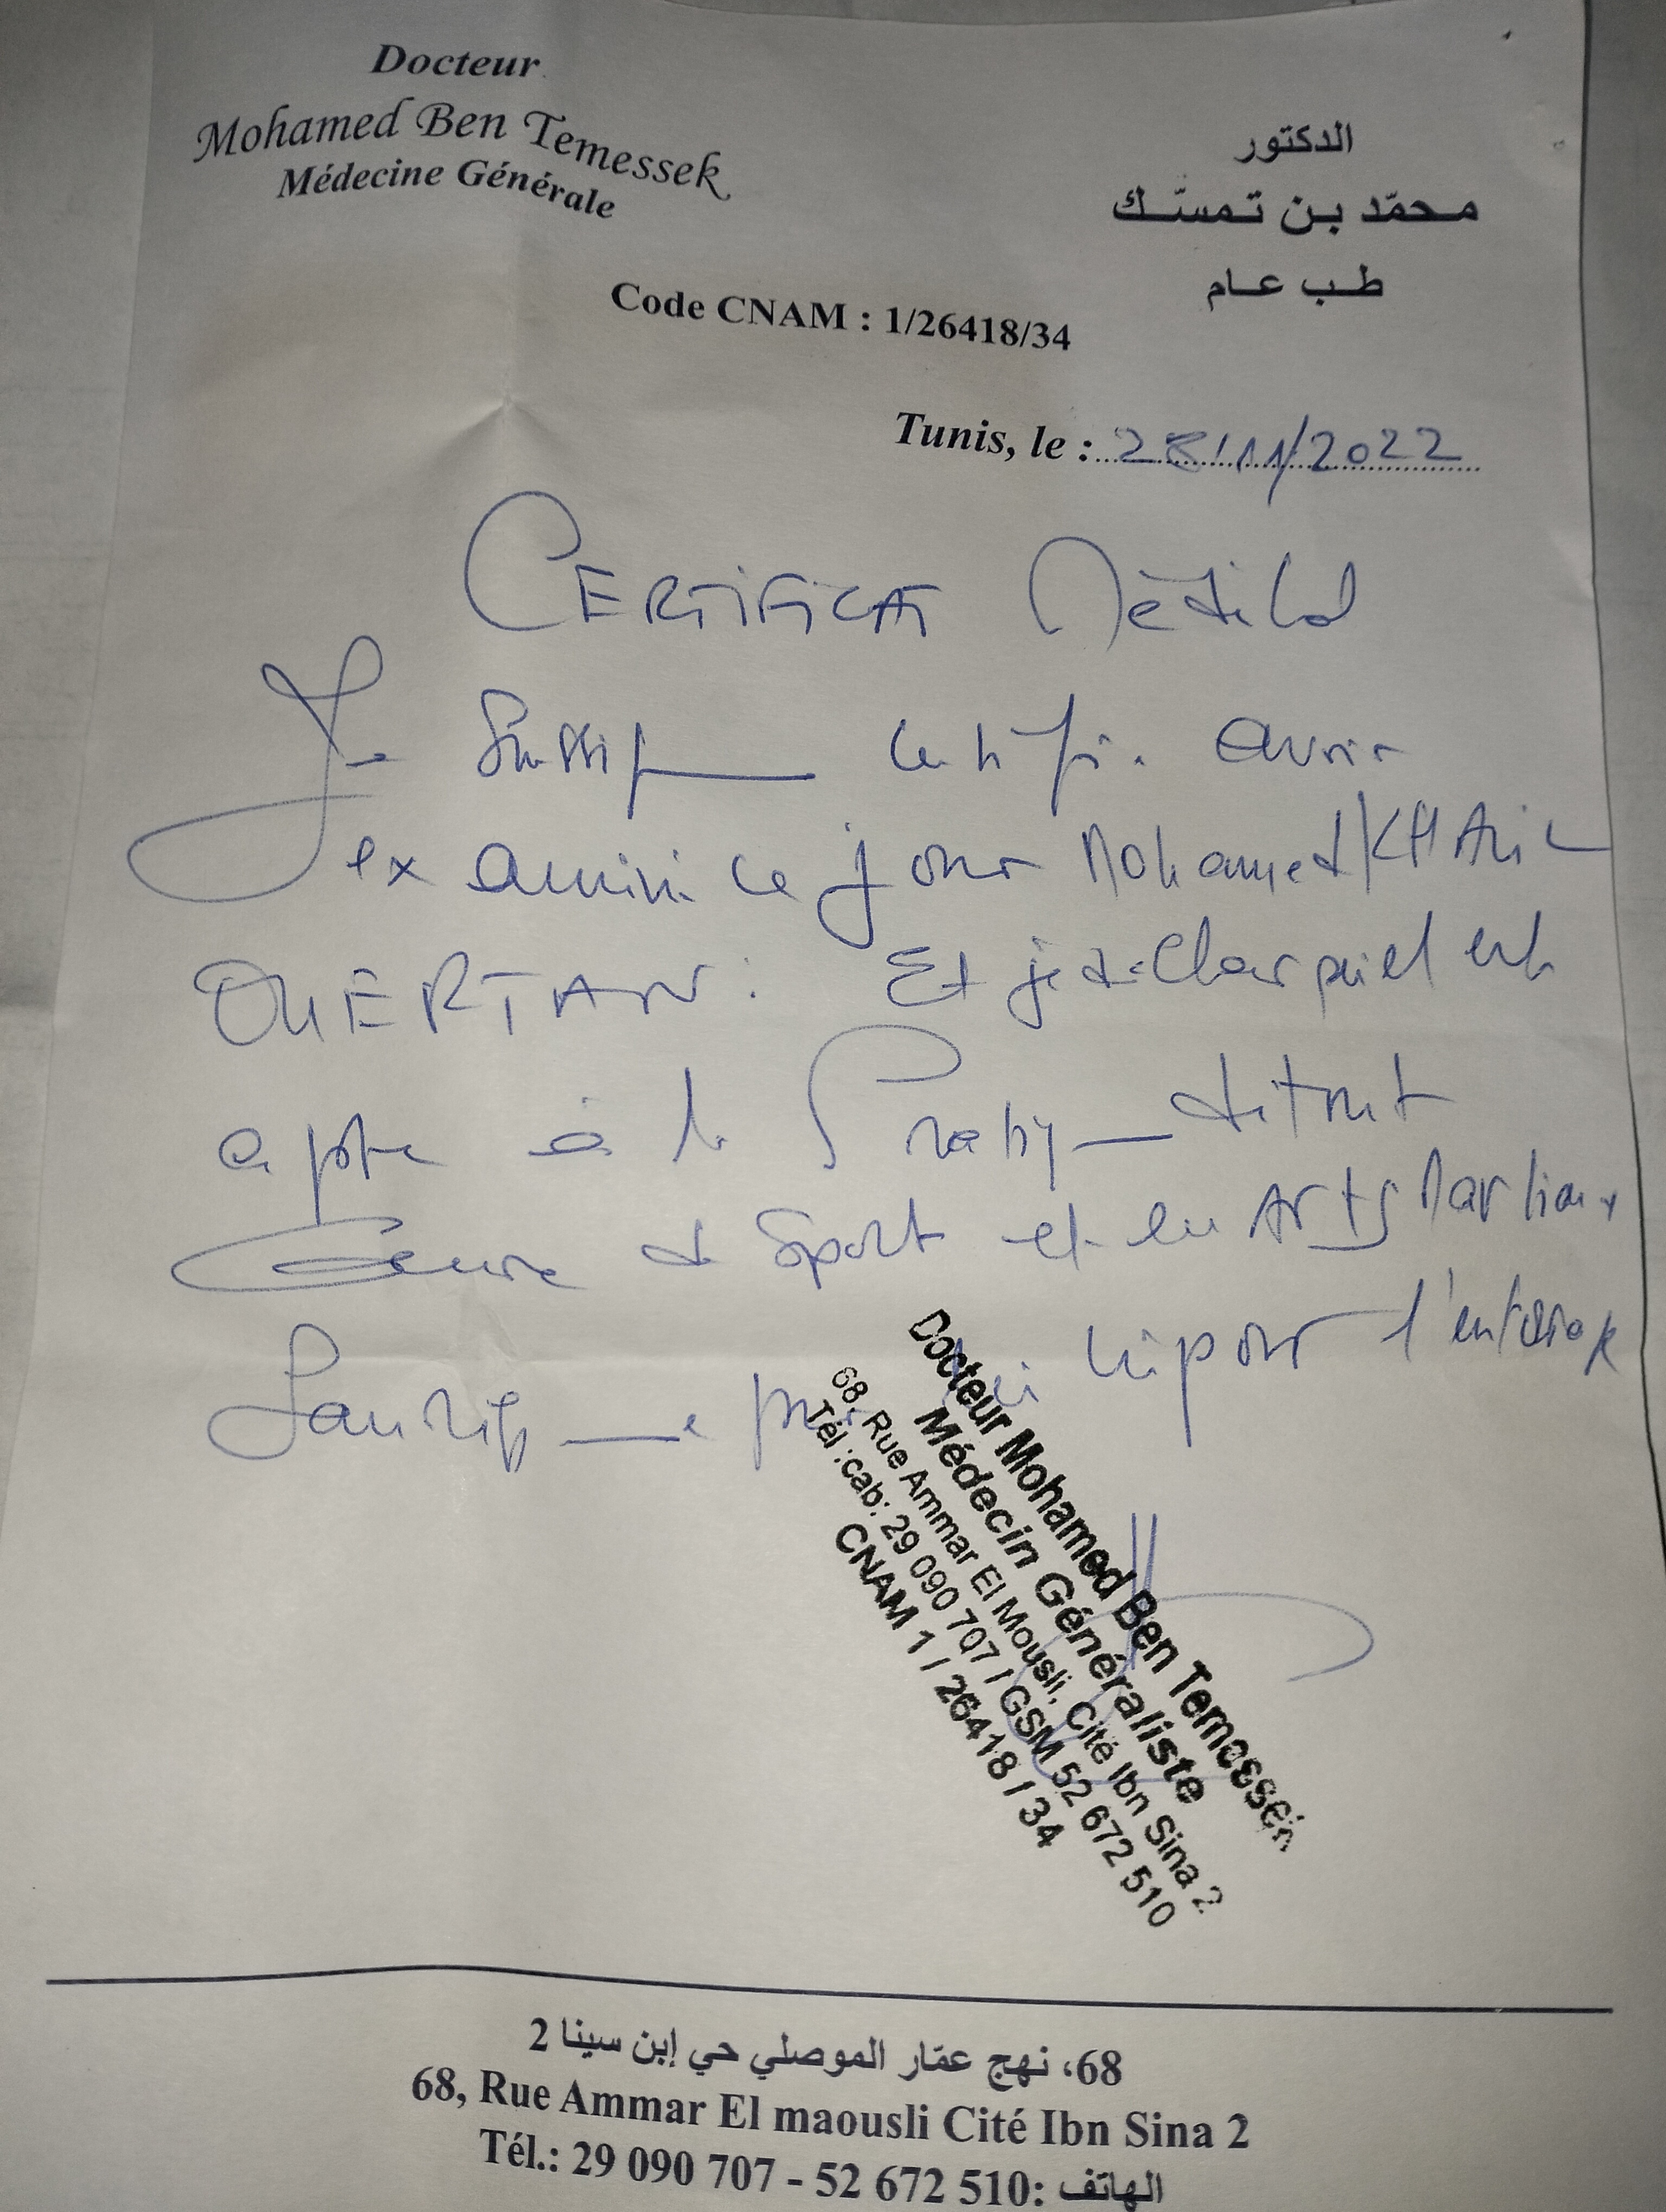 Docteur
Mohamed Ben Temessek
Médecine Générale
الدكتور
محمّد بن تمسّك
طب عام
Code CNAM : 1/26418/34
Tunis, le : 28/11/2022
CERTIFICAT Médical
Je Soussigné certifie avoir
examiné ce jour Mohamed KHAlil
OUERTANI Et je déclare qu'il est
apte à la Pratique de tout
Genre de Sport et en Arts Martiaux
l'entérop
Docteur Mohamed Ben Temessek
Médecin Généraliste
68, Rue Ammar El Mousli, Cité Ibn Sina 2
Tél :cab: 29 090 707 / GSM 52 672 510
CNAM 1 / 26418 / 34
68، نهج عمّار الموصلي حي إبن سينا 2
68, Rue Ammar El maousli Cité Ibn Sina 2
Tél.: 29 090 707 - 52 672 510: الهاتف